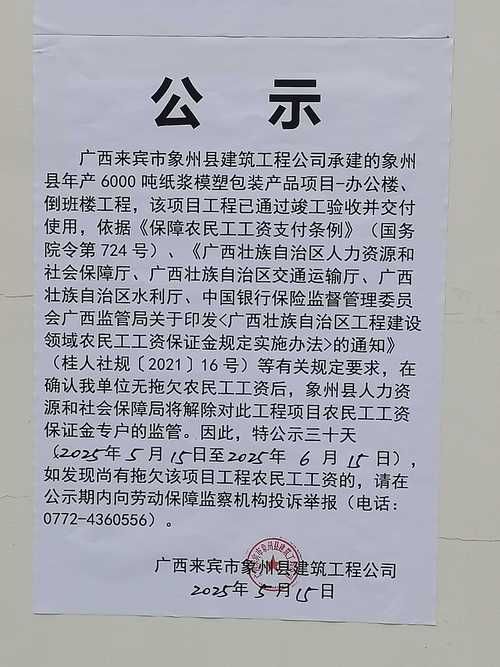 公 示
广西来宾市象州县建筑工程公司承建的象州
县年产 6000 吨纸浆模塑包装产品项目-办公楼、
倒班楼工程，该项目工程已通过竣工验收并交付
使用，依据《保障农民工工资支付条例》（国务
院令第 724 号）、《广西壮族自治区人力资源和
社会保障厅、广西壮族自治区交通运输厅、广西
壮族自治区水利厅、中国银行保险监督管理委员
会广西监管局关于印发<广西壮族自治区工程建设
领域农民工工资保证金规定实施办法>的通知》
（桂人社规〔2021〕16 号）等有关规定要求，在
确认我单位无拖欠农民工工资后，象州县人力资
源和社会保障局将解除对此工程项目农民工工资
保证金专户的监管。因此，特公示三十天
（2025年 5 月 15日至2025年 6 月 15 日），
如发现尚有拖欠该项目工程农民工工资的，请在
公示期内向劳动保障监察机构投诉举报（电话：
0772-4360556）。
广西来宾市象州县建筑工程公司
2025年 5 月 15 日